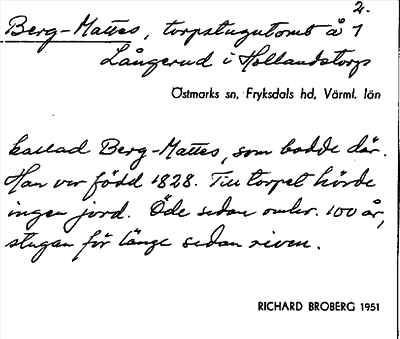 2.
Berg-Mattes, torpstugutomt å 1
Långerud i Höllandstorp
Östmarks sn, Fryksdals hd, Värml. län
kallad Berg-Mattes, som bodde där.
Han var född 1828. Till torpet hörde
ingen jord. Öde sedan omkr. 100 år,
stugan för länge sedan riven.
RICHARD BROBERG 1951